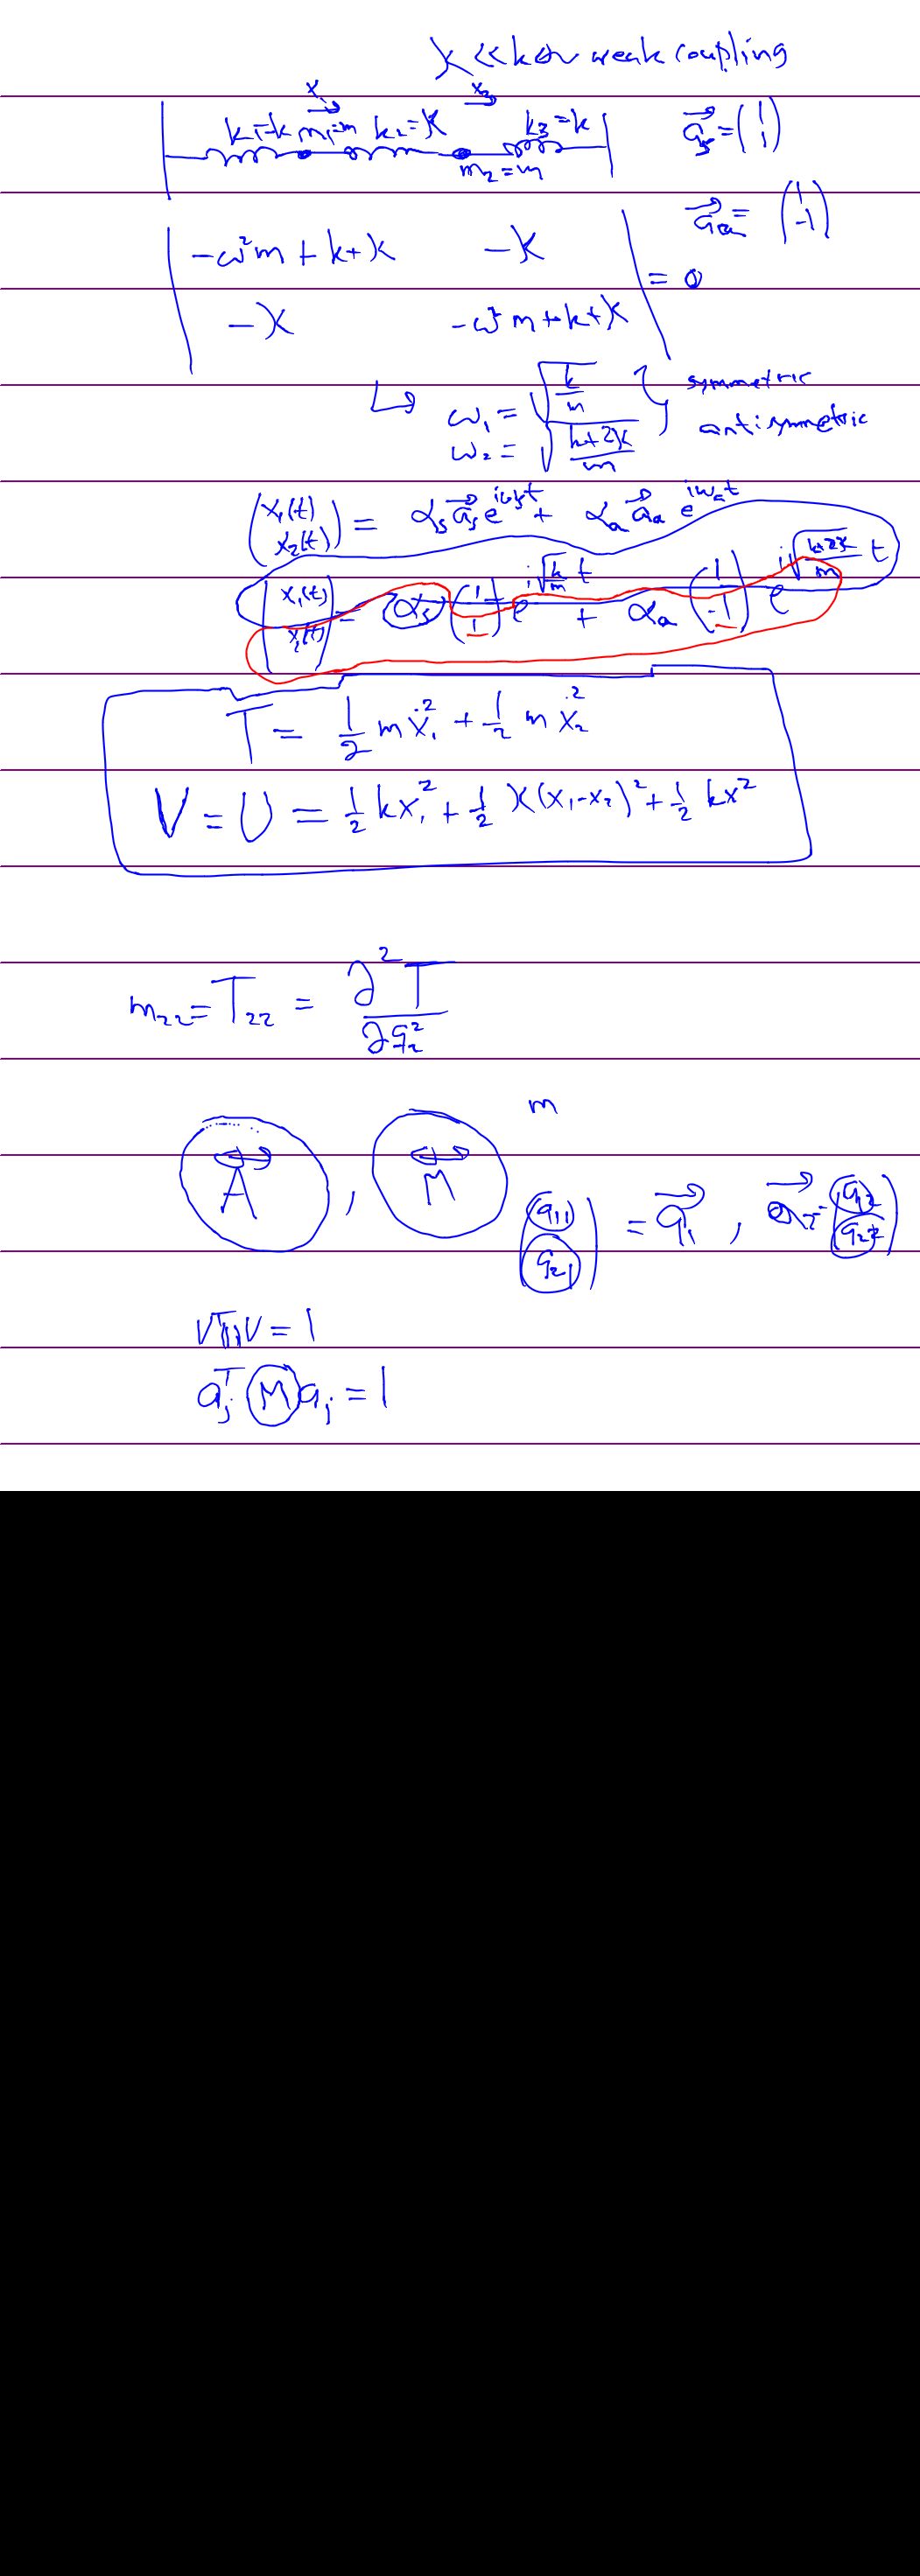 ϰ << k ⇔ weak coupling
x₁ → x₂ →
k₁=k m₁=m k₂=ϰ k₃=k
m₂=m
a⃗ₛ = (1 1)
a⃗ₐ = (1 -1)
| -ω²m + k + ϰ -ϰ |
= 0
| -ϰ -ω²m + k + ϰ |
↳ ω₁ = √(k/m) } symmetric
ω₂ = √((k+2ϰ)/m) antisymmetric
(x₁(t) x₂(t)) = αₛ a⃗ₛ e^{iωₛt} + αₐ a⃗ₐ e^{iωₐt}
(x₁(t) x₂(t)) = αₛ (1 1) e^{i√(k/m) t} + αₐ (1 -1) e^{i√((k+2ϰ)/m) t}
T = ½ m ẋ₁² + ½ m ẋ₂²
V = U = ½ kx₁² + ½ ϰ(x₁-x₂)² + ½ kx²
m₂₂ = T₂₂ = ∂²T / ∂q₂²
m
A , M
(a₁₁ a₂₁) = a⃗₁ , a⃗₂ = (a₁₂ a₂₂)
vᵀMv = 1
aⱼᵀ M aⱼ = 1